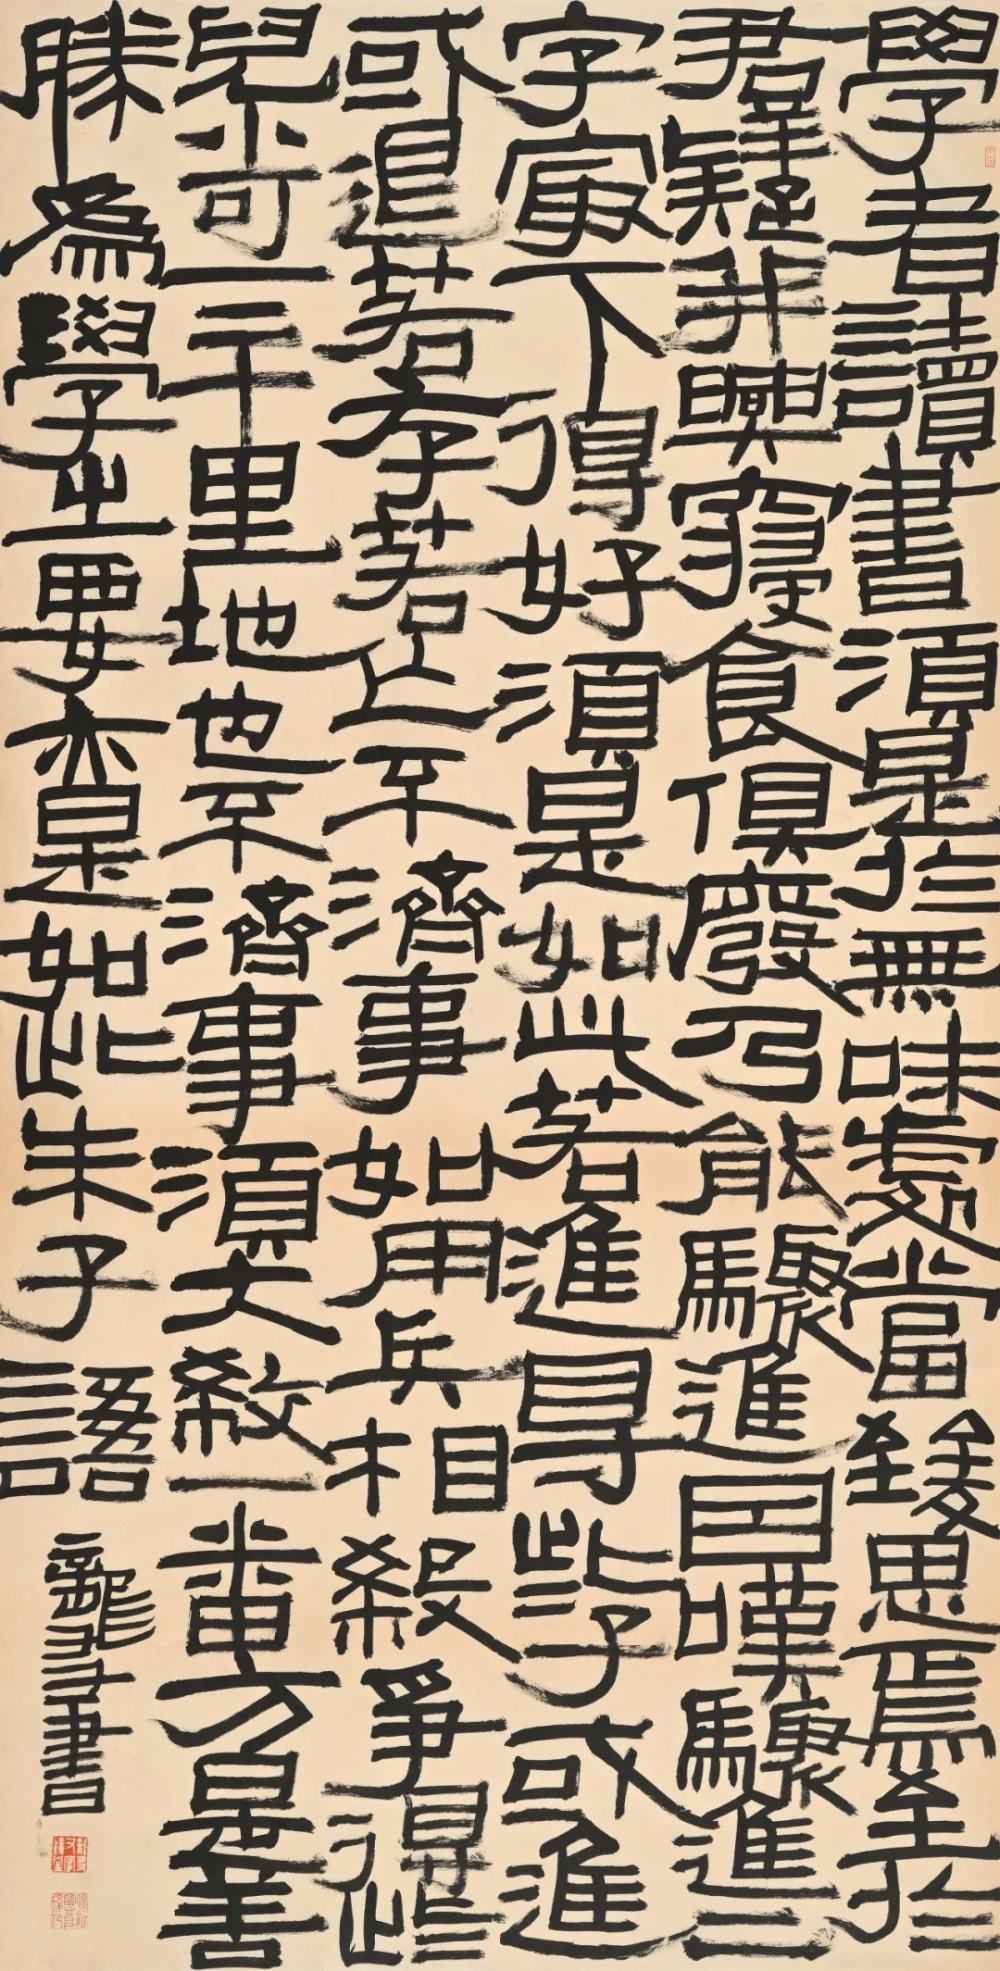 學者讀書須是於無味處當致思焉至於
羣疑並興寢食俱廢乃能驟進因嘆驟進二
字最下得好須是如此若進得些子或進
或退若存若亡不濟事如用兵相殺爭得些
兒小可一二十里地也不濟事須大殺一番方是善
勝為學之要亦是如此朱子語
龍書